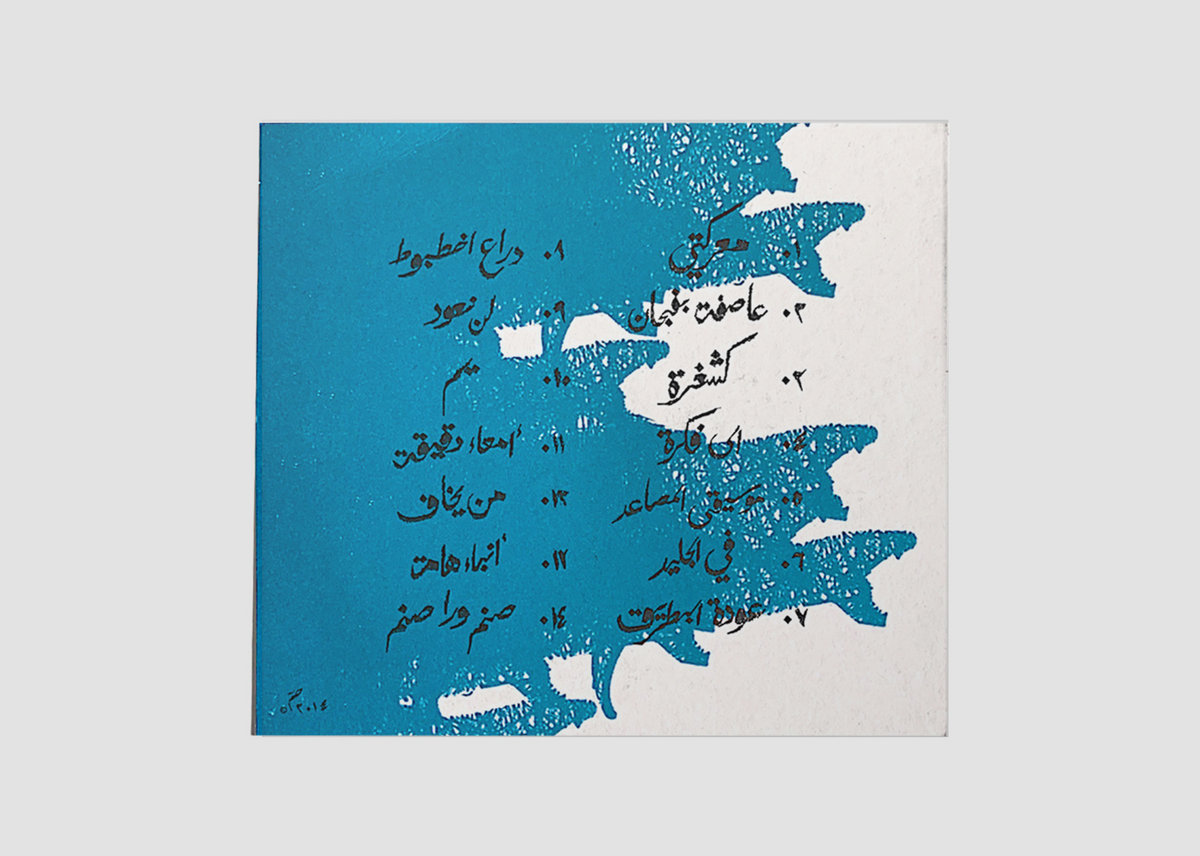 ٠١ معركتي
٠٢ عاصفة بفنجان
٠٣ كشغرة
٠٤ اي فكرة
٠٥ موسيقى المصاعد
٠٦ في الجليد
٠٧ عودة البطريق
٠٨ دراع اخطبوط
٠٩ لن نعود
٠١٠
٠١١ أمعاء دقيقة
٠١٢ من يخاف
٠١٣ أنباء هامة
٠١٤ صنم ورا صنم
٢٠١٤